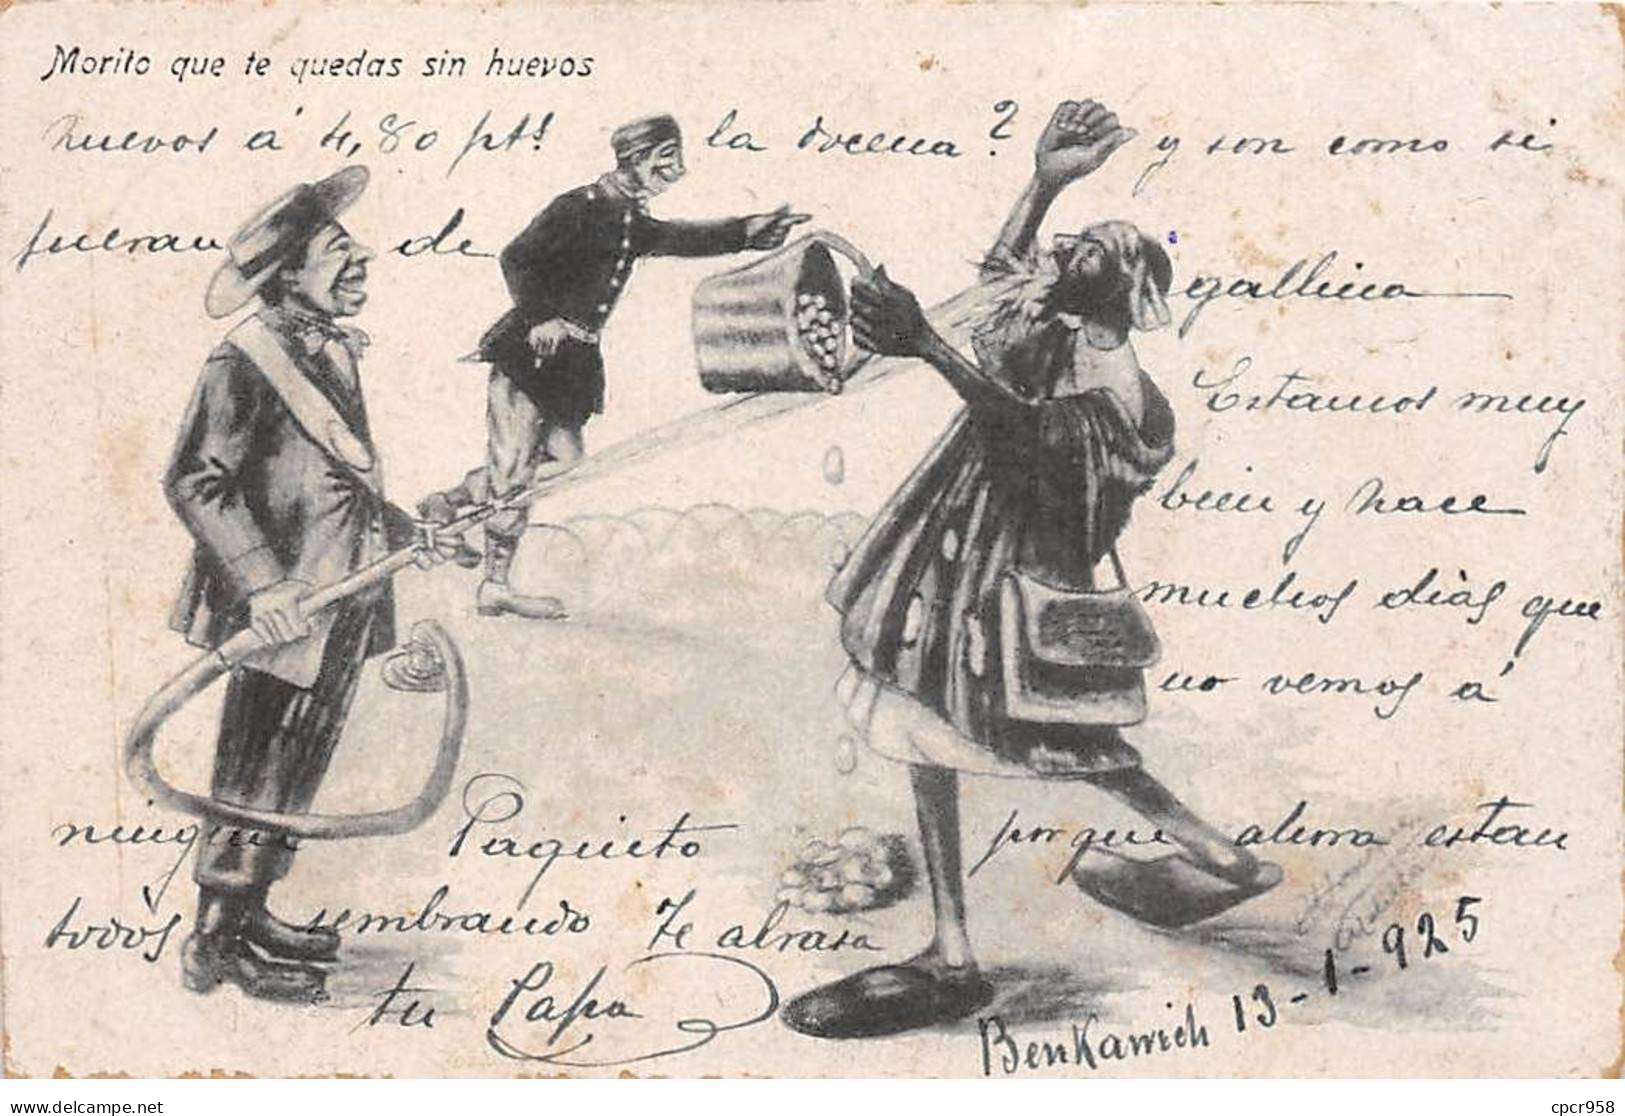 Morito que te quedas sin huevos
huevos á 4,80 pts. la docena? y son como si
fueran de
gallina
Estamos muy
bien y hace
muchos dias que
no vemos á
ningun Paquito porque ahora estan
todos sembrando Te abrasa
tu Papa
BenKarrich 13-1-925
delcampe.net
cpcr958